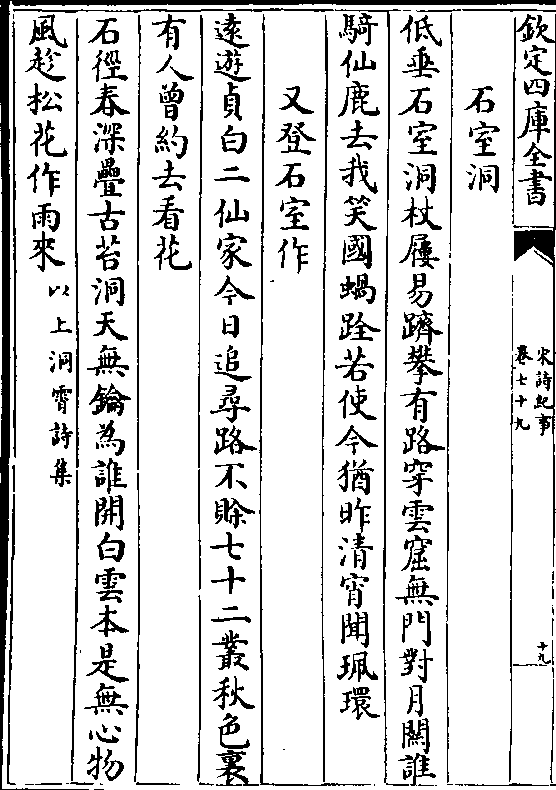 欽定四庫全書
宋詩紀事
卷七十九
十九
石室洞
低垂石室洞杖屨易躋攀有路穿雲窟無門對月關誰
騎仙鹿去我笑國蝸跧若使今猶昨清宵聞珮環
又登石室作
遠遊貞白二仙家今日追尋路不賒七十二叢秋色裏
有人曾約去看花
石徑春深疊古苔洞天無鑰為誰開白雲本是無心物
風趁松花作雨來以上洞霄詩集